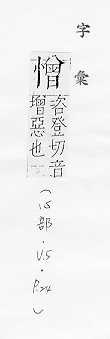 字彙
憎
咨登切音
增惡也
(心部.V.5.P.24)